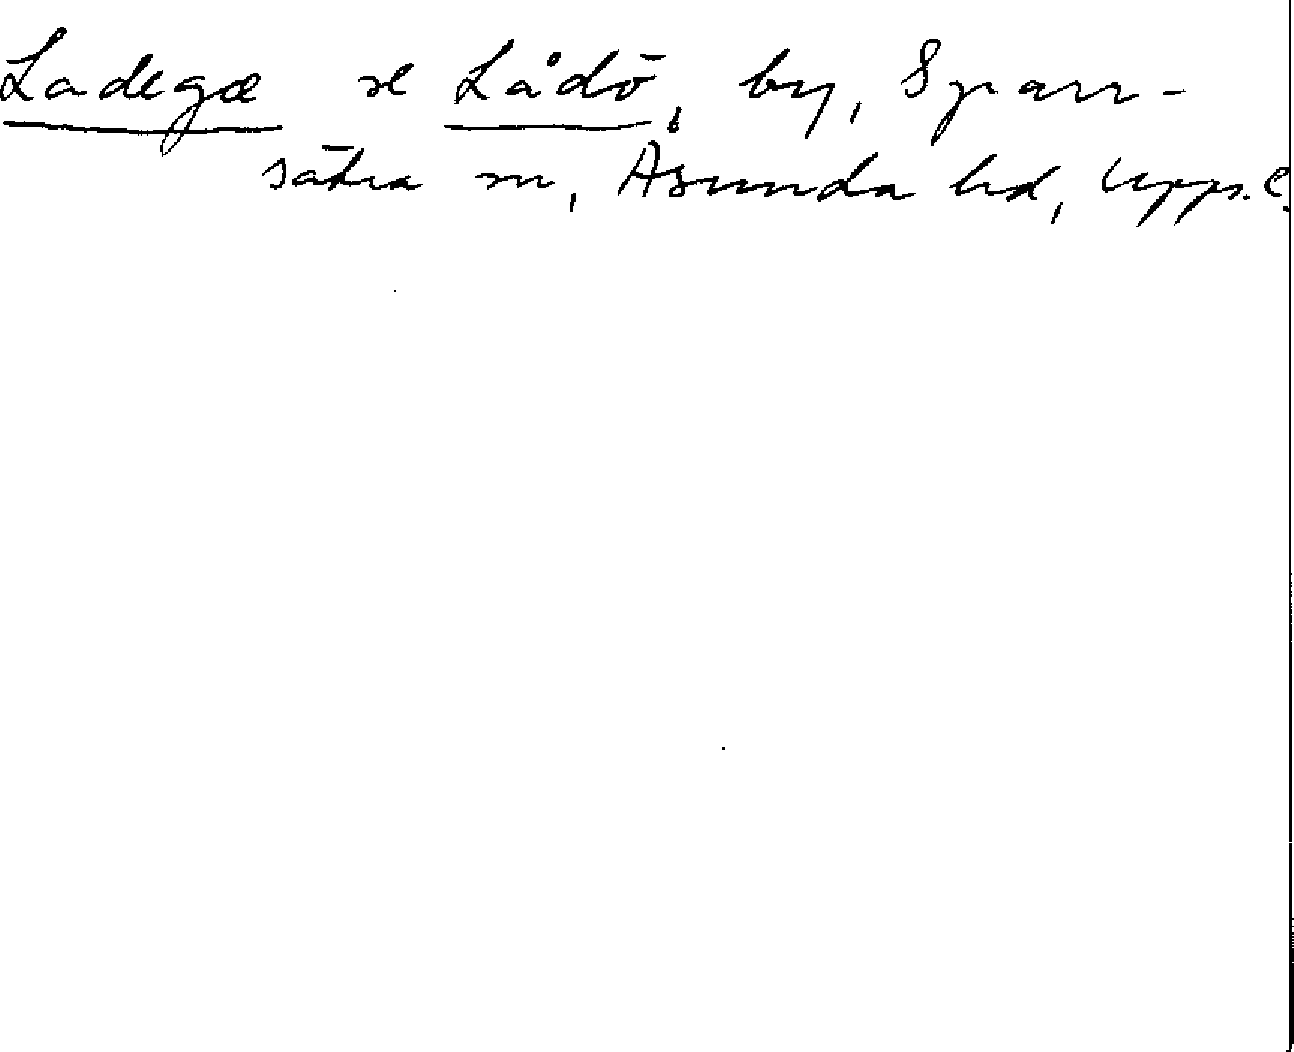 Ladegæ se Lådö, by, Sparr-
sätra sn, Åsunda hd, Upps. l.